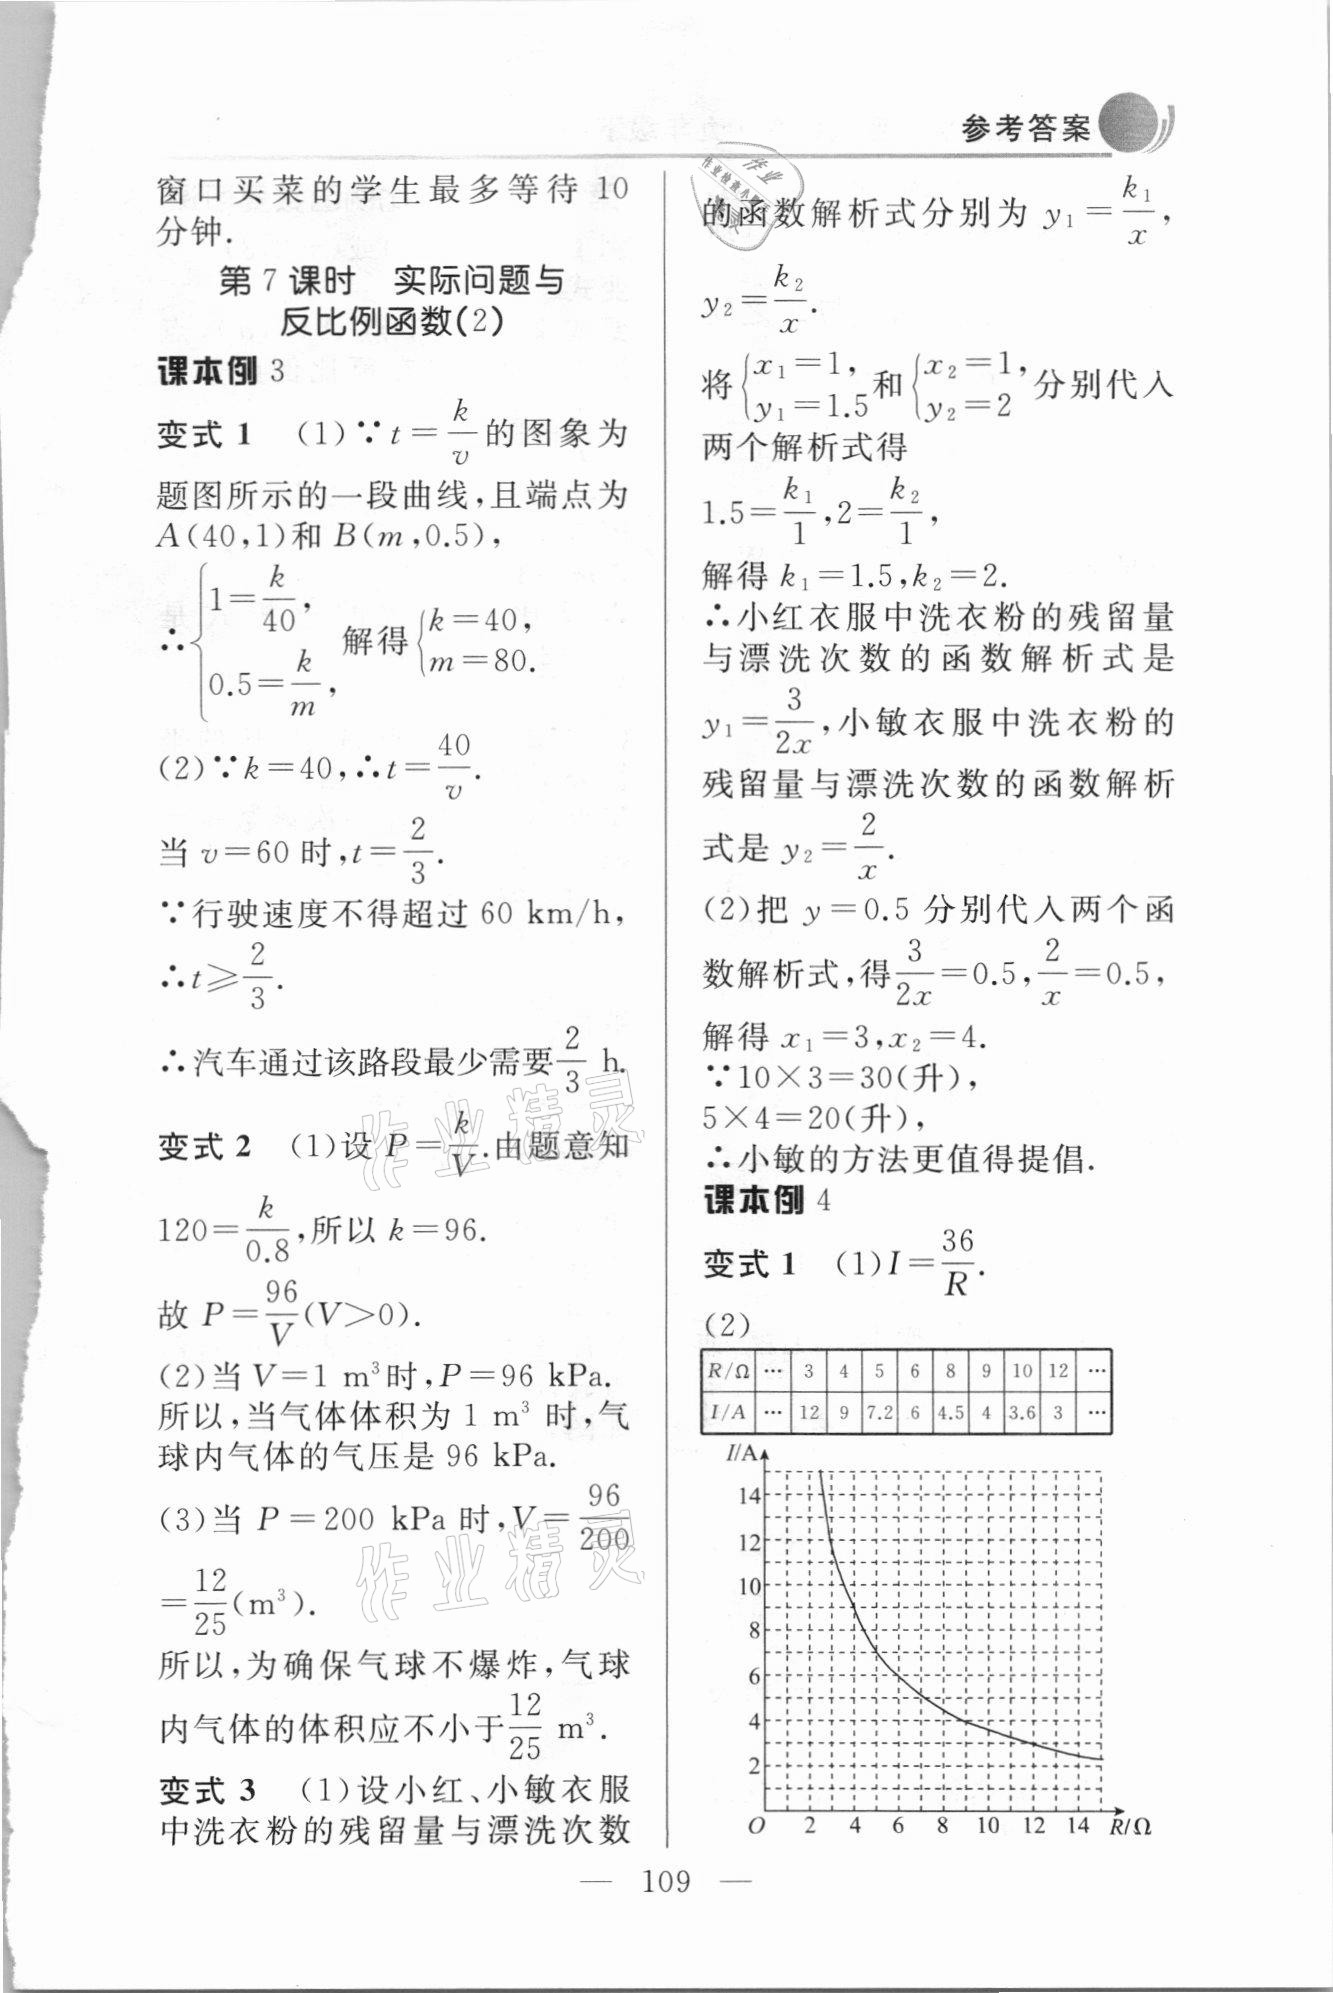 参考答案
窗口买菜的学生最多等待 10
分钟.
第 7 课时　实际问题与
反比例函数(2)
课本例 3
变式 1　(1)∵t=k/v的图象为
题图所示的一段曲线,且端点为
A(40,1)和 B(m,0.5),
∴{1=k/40, 0.5=k/m, 解得{k=40, m=80.
(2)∵k=40,∴t=40/v.
当 v=60 时,t=2/3.
∵行驶速度不得超过 60 km/h,
∴t≥2/3.
∴汽车通过该路段最少需要2/3 h.
变式 2　(1)设 P=k/V.由题意知
120=k/0.8,所以 k=96.
故 P=96/V(V>0).
(2)当 V=1 m³时,P=96 kPa.
所以,当气体体积为 1 m³ 时,气
球内气体的气压是 96 kPa.
(3)当 P=200 kPa 时,V=96/200
=12/25(m³).
所以,为确保气球不爆炸,气球
内气体的体积应不小于12/25 m³.
变式 3　(1)设小红、小敏衣服
中洗衣粉的残留量与漂洗次数
的函数解析式分别为 y₁=k₁/x,
y₂=k₂/x.
将{x₁=1, y₁=1.5和{x₂=1, y₂=2分别代入
两个解析式得
1.5=k₁/1,2=k₂/1,
解得 k₁=1.5,k₂=2.
∴小红衣服中洗衣粉的残留量
与漂洗次数的函数解析式是
y₁=3/2x,小敏衣服中洗衣粉的
残留量与漂洗次数的函数解析
式是 y₂=2/x.
(2)把 y=0.5 分别代入两个函
数解析式,得3/2x=0.5,2/x=0.5,
解得 x₁=3,x₂=4.
∵10×3=30(升),
5×4=20(升),
∴小敏的方法更值得提倡.
课本例 4
变式 1　(1)I=36/R.
(2)
R/Ω … 3 4 5 6 8 9 10 12 …
I/A … 12 9 7.2 6 4.5 4 3.6 3 …
I/A
14
12
10
8
6
4
2
O 2 4 6 8 10 12 14 R/Ω
— 109 —
作业精灵
作业精灵